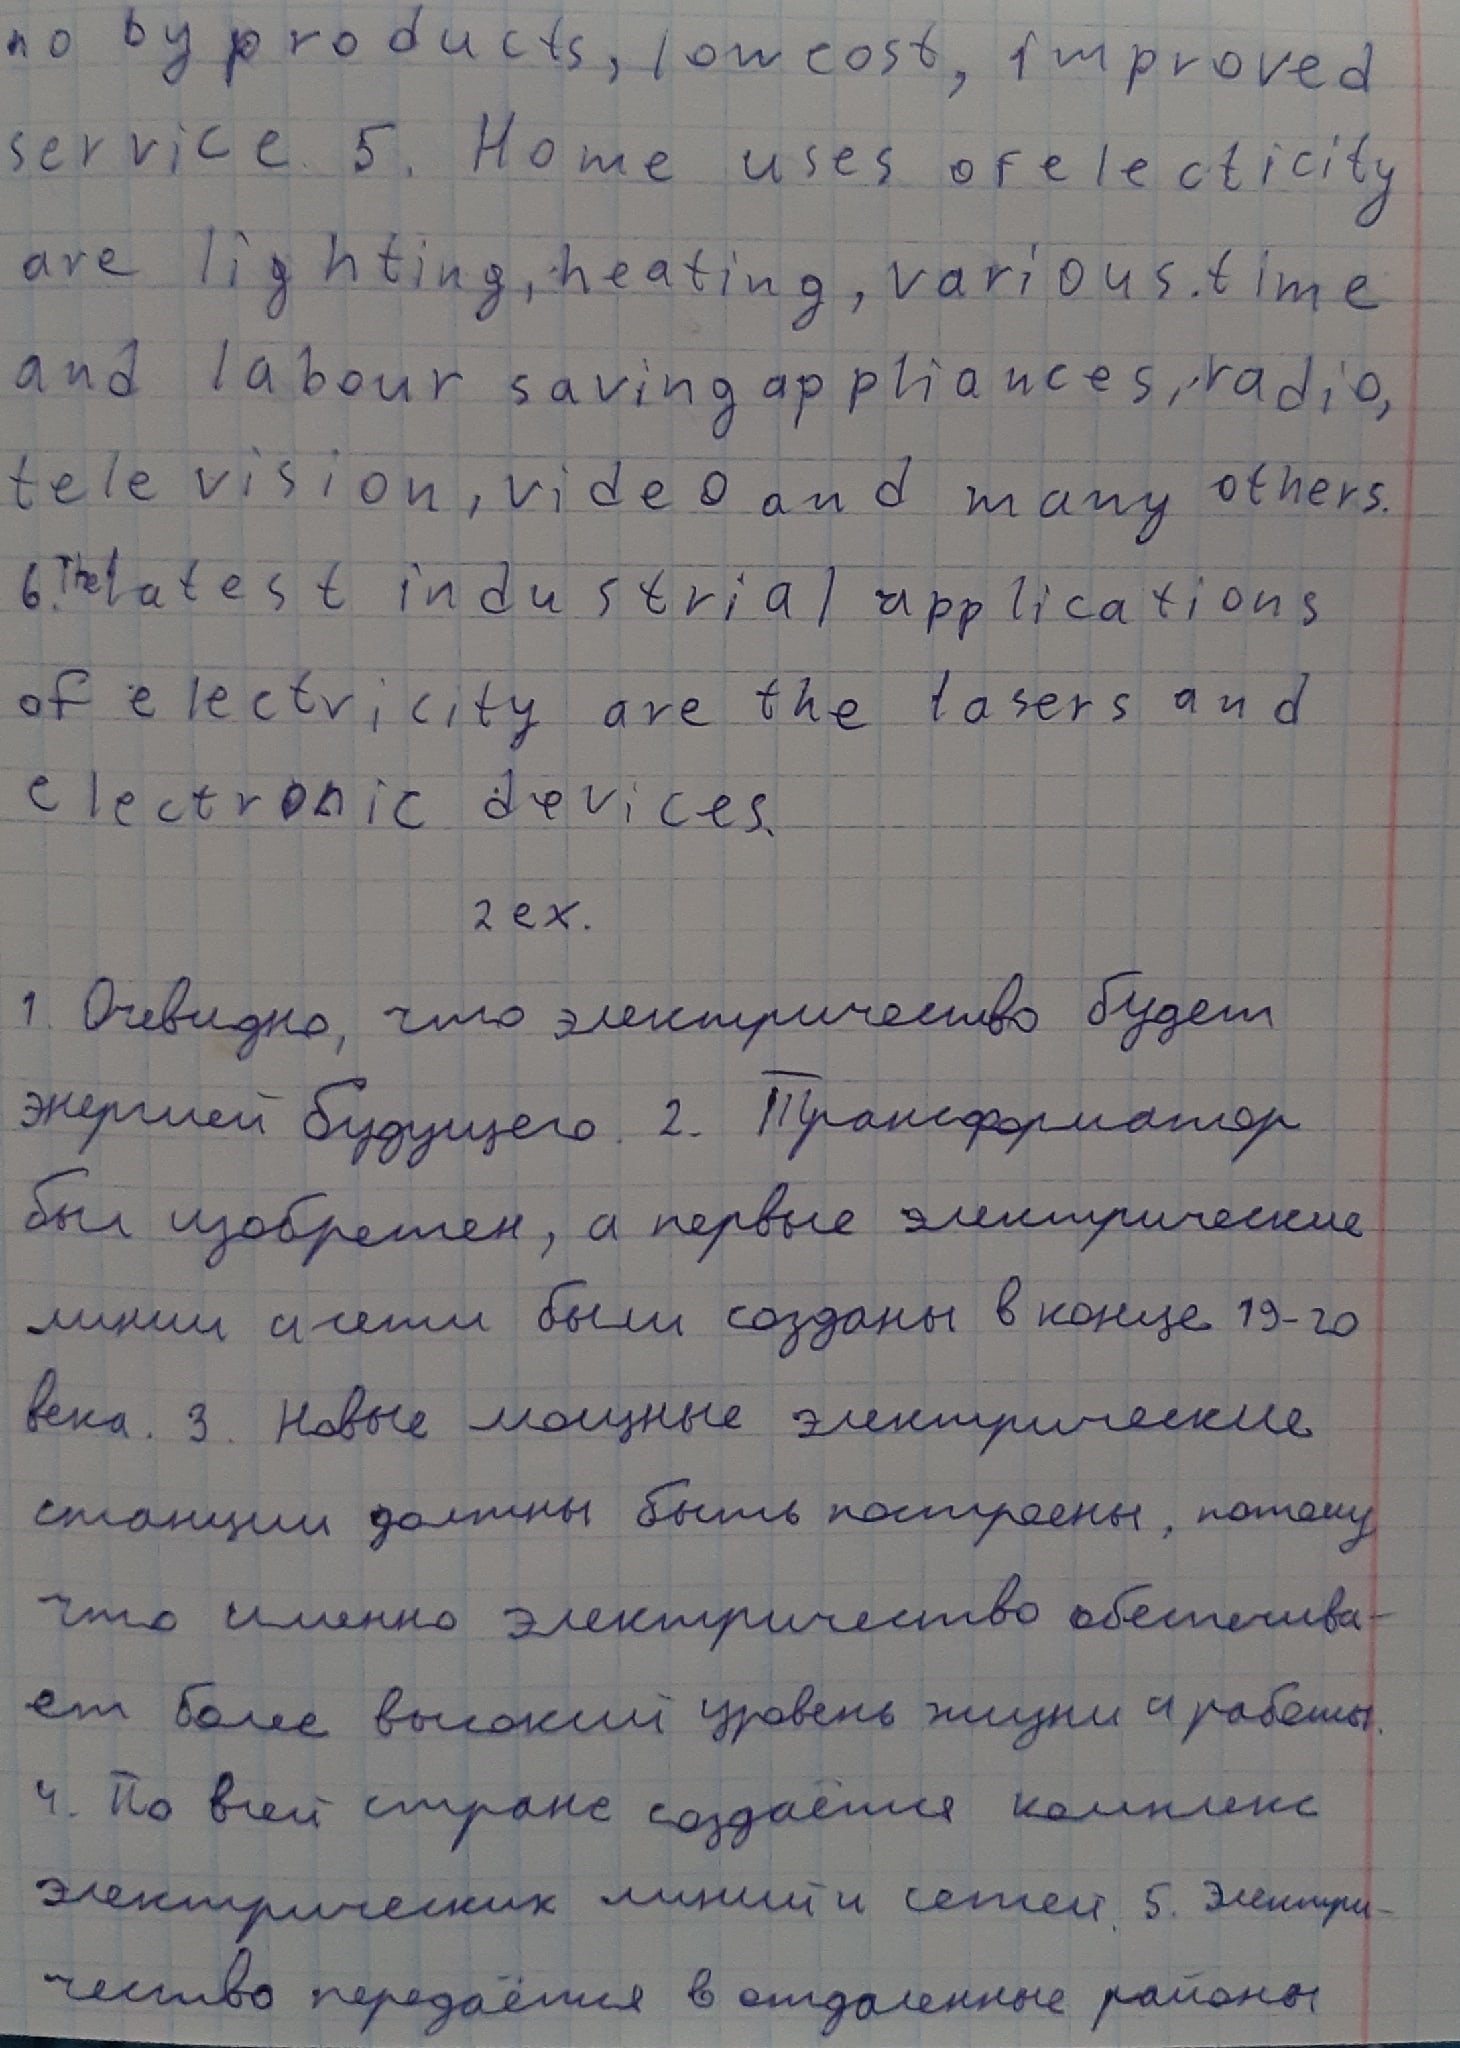 no by products, low cost, improved
service. 5. Home uses of electicity
are lighting, heating, various time
and labour saving appliances, radio,
television, video and many others.
6. The latest industrial applications
of electricity are the lasers and
electronic devices.
2 ex.
1. Очевидно, что электричество будет
энергией будущего. 2. Трансформатор
был изобретен, а первые электрические
линии и сети были созданы в конце 19-го
века. 3. Новые мощные электрические
станции должны быть построены, потому
что именно электричество обеспечива-
ет более высокий уровень жизни и работы.
4. По всей стране создаётся комплекс
электрических линий и сетей. 5. Электри-
чество передаётся в отдаленные районы